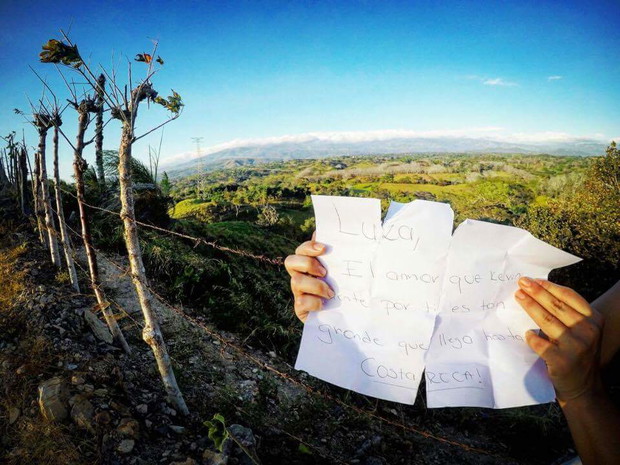 Luza,
El amor que
siente por ti es tan
grande que llego hasta
COSTA RICA!